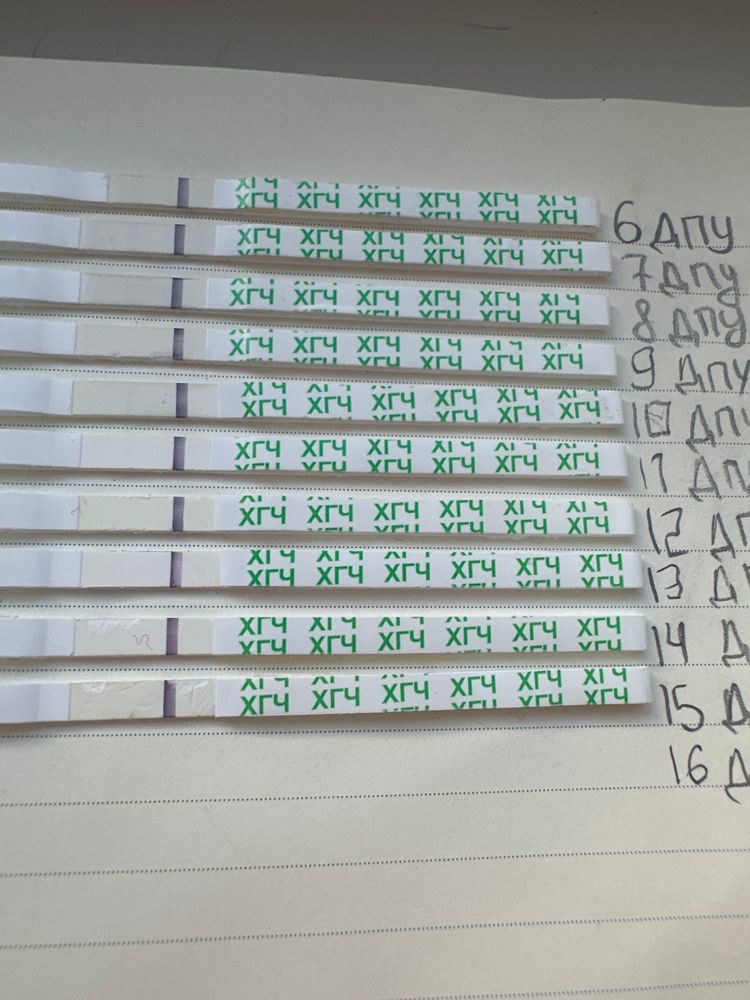 ХГЧ ХГЧ ХГЧ ХГЧ ХГЧ ХГЧ 6 ДПУ
ХГЧ ХГЧ ХГЧ ХГЧ ХГЧ ХГЧ 7 ДПУ
ХГЧ ХГЧ ХГЧ ХГЧ ХГЧ ХГЧ 8 ДПУ
ХГЧ ХГЧ ХГЧ ХГЧ ХГЧ ХГЧ 9 ДПУ
ХГЧ ХГЧ ХГЧ ХГЧ ХГЧ ХГЧ 10 ДПУ
ХГЧ ХГЧ ХГЧ ХГЧ ХГЧ ХГЧ 11 ДП
ХГЧ ХГЧ ХГЧ ХГЧ ХГЧ ХГЧ 12 ДП
ХГЧ ХГЧ ХГЧ ХГЧ ХГЧ ХГЧ 13 Д
ХГЧ ХГЧ ХГЧ ХГЧ ХГЧ ХГЧ 14 Д
ХГЧ ХГЧ ХГЧ ХГЧ ХГЧ ХГЧ 15 Д
16 Д